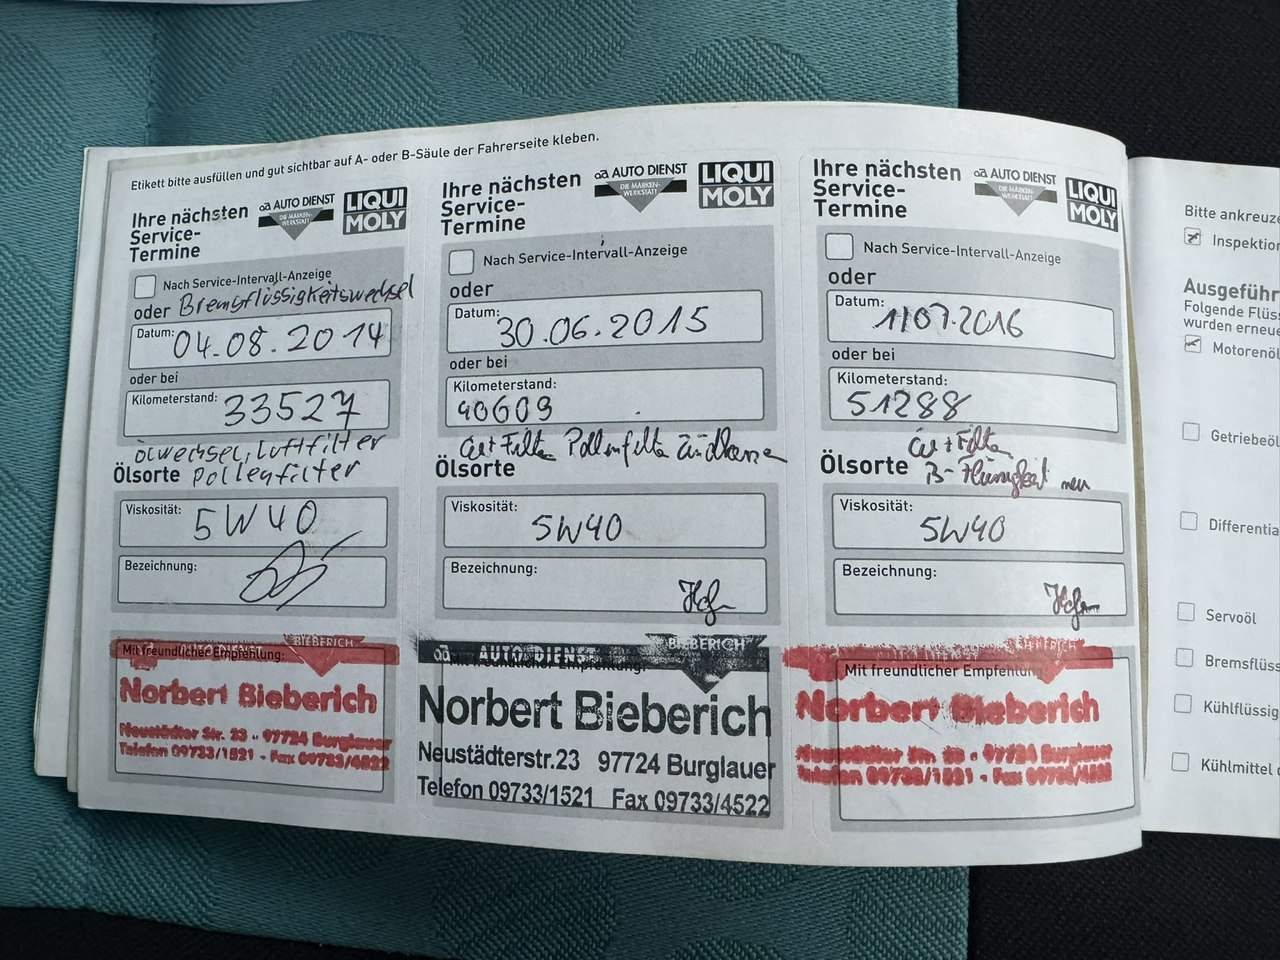 Etikett bitte ausfüllen und gut sichtbar auf A- oder B-Säule der Fahrerseite kleben.
Ihre nächsten
Service-
Termine
AUTO DIENST
DIE MARKEN-
WERKSTATT
LIQUI
MOLY
Nach Service-Intervall-Anzeige
oder Bremsflüssigkeitswechsel
Datum: 04.08.2014
oder bei
Kilometerstand: 33527
Ölwechsel, Luftfilter
Ölsorte Pollenfilter
Viskosität: 5W40
Bezeichnung:
BIEBERICH
AUTO DIENST
Mit freundlicher Empfehlung:
Norbert Bieberich
Neustädter Str. 23 - 97724 Burglauer
Telefon 09733/1521 - Fax 09733/4522
Ihre nächsten
Service-
Termine
AUTO DIENST
DIE MARKEN-
WERKSTATT
LIQUI
MOLY
Nach Service-Intervall-Anzeige
oder
Datum: 30.06.2015
oder bei
Kilometerstand:
40609
Öl + Filter Pollenfilter Zündkerzen
Ölsorte
Viskosität: 5W40
Bezeichnung:
BIEBERICH
AUTO DIENST
Mit freundlicher Empfehlung:
Norbert Bieberich
Neustädterstr.23 97724 Burglauer
Telefon 09733/1521 Fax 09733/4522
Ihre nächsten
Service-
Termine
AUTO DIENST
DIE MARKEN-
WERKSTATT
LIQUI
MOLY
Nach Service-Intervall-Anzeige
oder
Datum: 11.07.2016
oder bei
Kilometerstand:
51288
Öl + Filter
Ölsorte B-Flüssigkeit neu
Viskosität: 5W40
Bezeichnung:
BIEBERICH
Mit freundlicher Empfehlun
Norbert Bieberich
Neustädter Str. 23 - 97724 Burglauer
Telefon 09733/1521 - Fax 09733/4522
Bitte ankreuze
Inspektion
Ausgeführ
Folgende Flüss
wurden erneue
Motorenöl
Getriebeöl
Differentia
Servoöl
Bremsflüss
Kühlflüssig
Kühlmittel